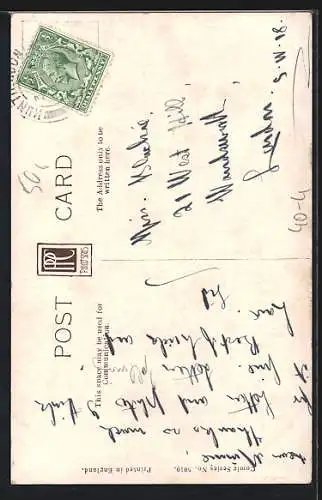 POST CARD
This space may be used for
Communication.
The Address only to be
written here.
HUNTINGDON
50c
40-4
Comic Series No. 5819.
Printed in England.
Miss Blackie,
21 West Hill,
Wandsworth,
London. S.W. 18.
Dear
thanks so much
for letter and photo I think
it fine
Best of luck and
Love
Sid